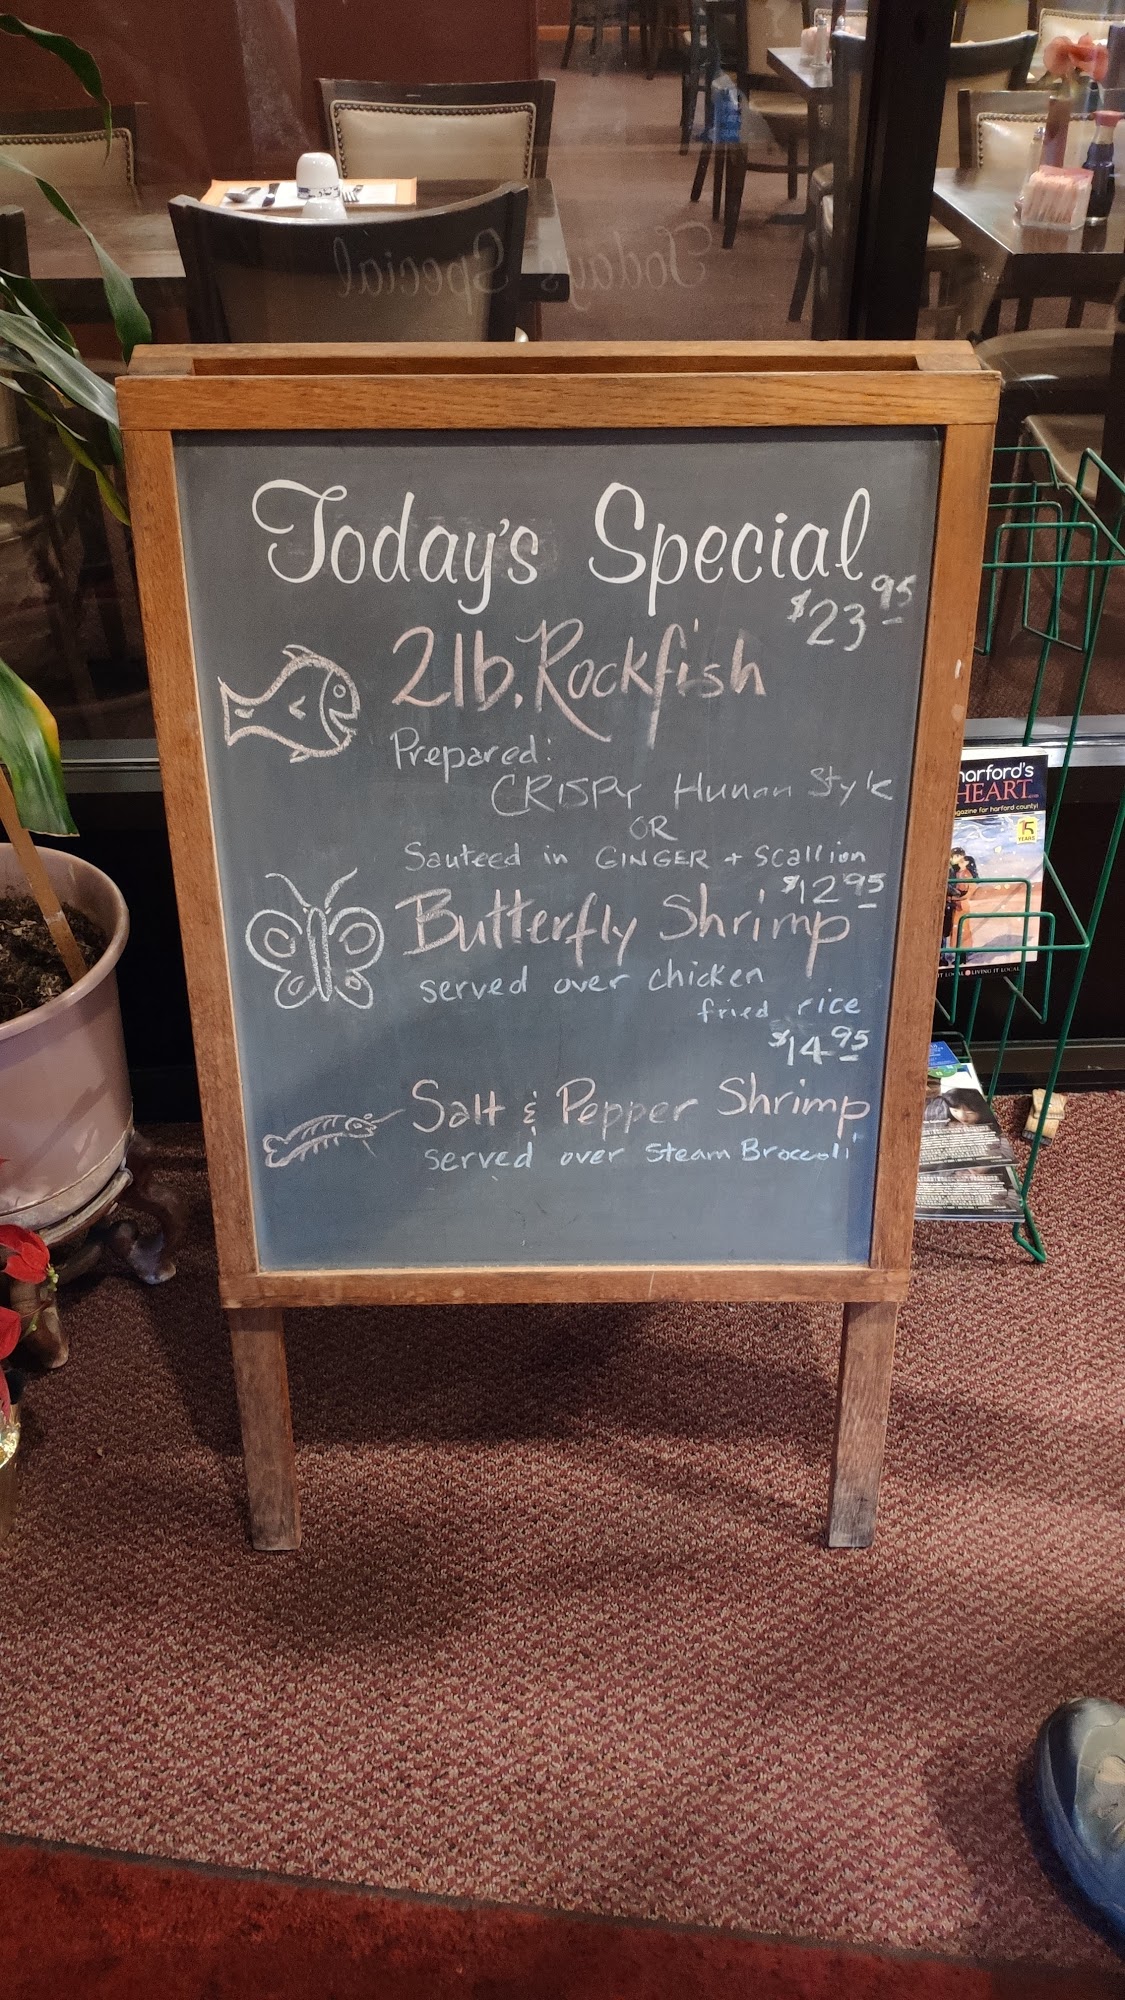 Today's Special
$23 95
2lb. Rockfish
Prepared:
CRISPY Hunan Style
OR
Sauteed in GINGER + Scallion
$12 95
Butterfly Shrimp
served over chicken
fried rice
$14 95
Salt & Pepper Shrimp
served over Steam Broccoli
harford's
HEART
magazine for harford county!
15
YEARS
LOCAL LIVING IT LOCAL
Today's Special